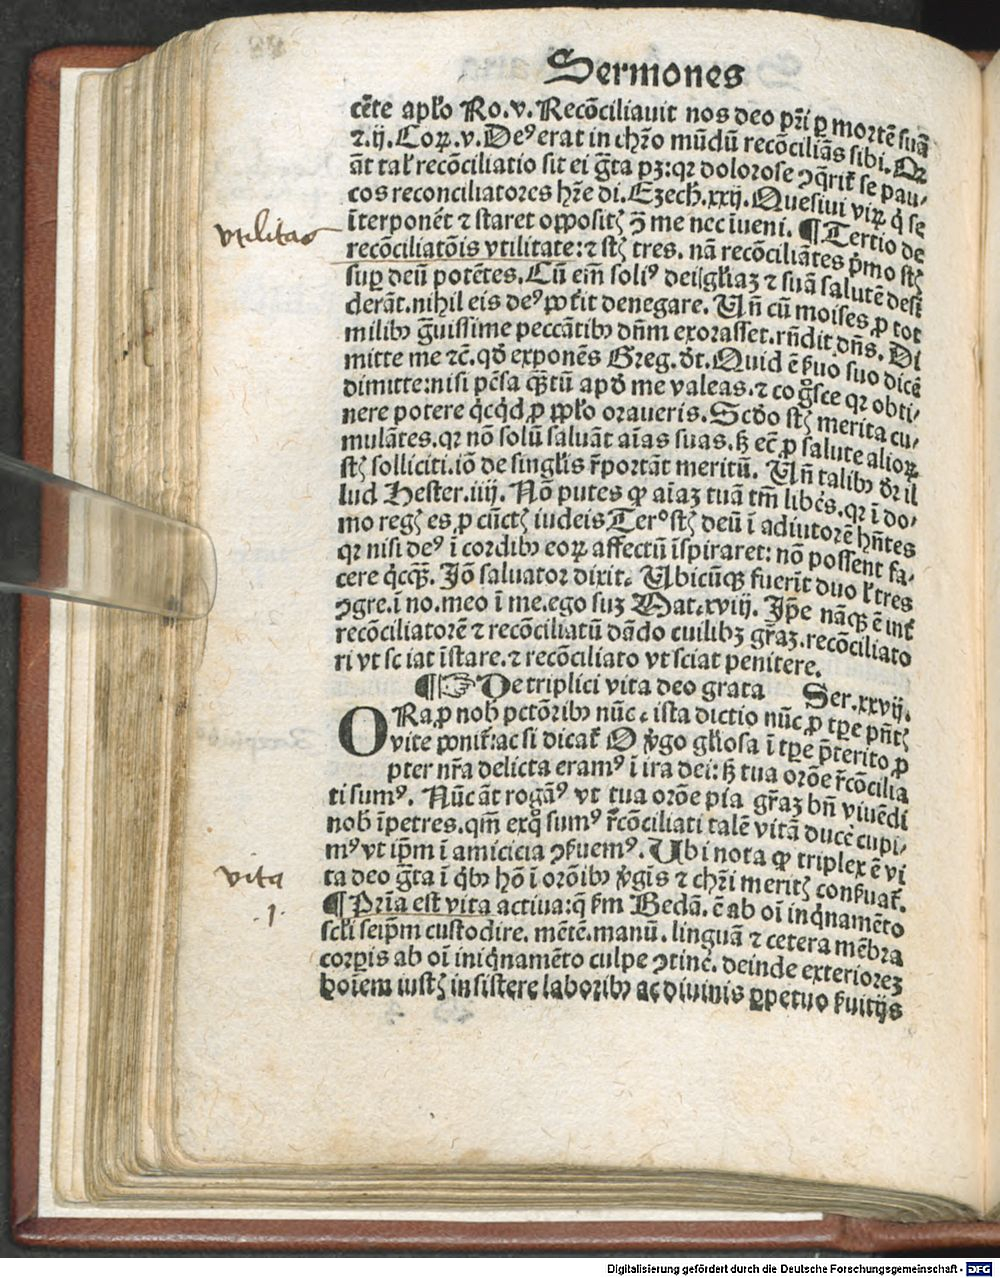 Sermones
cēte apl'o Ro.v. Recōciliauit nos deo pr̄i ꝑ mortē suā
⁊.ij. Coꝝ.v. Deꝰ erat in chr̄o mūdū recōciliās sibi. Qꝛ
āt tal' recōciliatio sit ei gr̄ta pꝫ: qꝛ dolorose ꝯq̄rit̄ se pau⸗
cos reconciliatores hr̄e di. Ezech. xxij. Quesiui viꝝ q̇ se
īterponēt ⁊ staret opposit⁹ ꝯ̄ me nec īueni. ¶ Tertio de
vtilitas
recōciliatōis vtilitate: ⁊ st̄ tres. nā recōciliātes pͥmo st̄
suꝑ deū potētes. Cū em̄ soliꝰ dei gl'iaꝫ ⁊ suā salutē desi
derāt. nihil eis deꝰ pōt̄it denegare. Vn̄ cū moises ꝓ tot
milibꝰ gͣuissime peccātibꝰ dn̄m exorasset. rn̄dit dn̄s. Di
mitte me ⁊c̄. qď exponēs Greg. dt̄. Quid ē ẜuo suo dicē
dimitte: nisi pēsa qͣꝫtū apď me valeas. ⁊ cogͦsce qꝛ obti⸗
nere potere q̇cq̇d ꝓ pp̄l'o oraueris. Scďo st̄ merita cu⸗
mulātes. qꝛ nō solū saluāt aīas suas. sꝫ ec̄ ꝓ salute alioꝝ
st̄ solliciti. iō de singl'is r̄portāt meritū. Vn̄ talibꝰ dr̄ il
lud Hester. iiij. Nō putes ꝙ aīaꝫ tuā tm̄ liberes. qꝛ ī do⸗
mo reḡ es ꝓ cūct̄ iudeis Terͦ st̄ deū ī adiutorē hn̄tes
qꝛ nisi deꝰ ī cordibꝰ eoꝝ affectū īspiraret: nō possent fa⸗
cere q̇cqͣꝫ. Iō saluator dixit. Vbicūqꝫ fuerīt duo l' tres
ꝯgre. ī no. meo ī me. ego suꝫ Mat. xviij. Ip̄e nāqꝫ ē int̄
recōciliatorē ⁊ recōciliatū dādo cuilibꝫ gr̄aꝫ. recōciliato
ri vt sciat īstare. ⁊ recōciliato vt sciat penitere.
¶☞ De triplici vita deo grata Ser. xxvij.
ORa ꝓ nob̄ pctōribꝰ nūc. ista dictio nūc ꝓ tꝑe pn̄t̄
vite ponit̄: ac si dicat̄ O v̇go gl'iosa ī tꝑe p̄terito ꝓ
pter nr̄a delicta eramꝰ ī ira dei: sꝫ tua orōe r̄cōcilia
ti sumꝰ. Nūc āt rogāꝰ vt tua orōe pia gr̄aꝫ bn̄ viuēdi
nob̄ īpetres. qm̄ ex q̊ sumꝰ r̄cōciliati talē vitā ducē cupi⸗
mꝰ vt ip̄m ī amicicia ꝯẜuemꝰ. Vbi nota ꝙ triplex ē vi
vita
ta deo gr̄ta ī q̇bꝰ hō ī orōibꝰ v̇gis ⁊ chr̄i merit̄ conẜuat̄.
.1.
¶ Pr̄ia est vita actiua: q̄ ẜm Bedā. ē ab oī inq̇namēto
scl'i seip̄m custodire. mētē. manū. linguā ⁊ cetera mēbra
corpis ab oī iniq̇namēto culpe ꝯtinē. deinde exterioreꝫ
hoīem iust̄ insistere laboribꝰ ac diuinis ꝑpetuo ẜuitijs
Digitalisierung gefördert durch die Deutsche Forschungsgemeinschaft - DFG